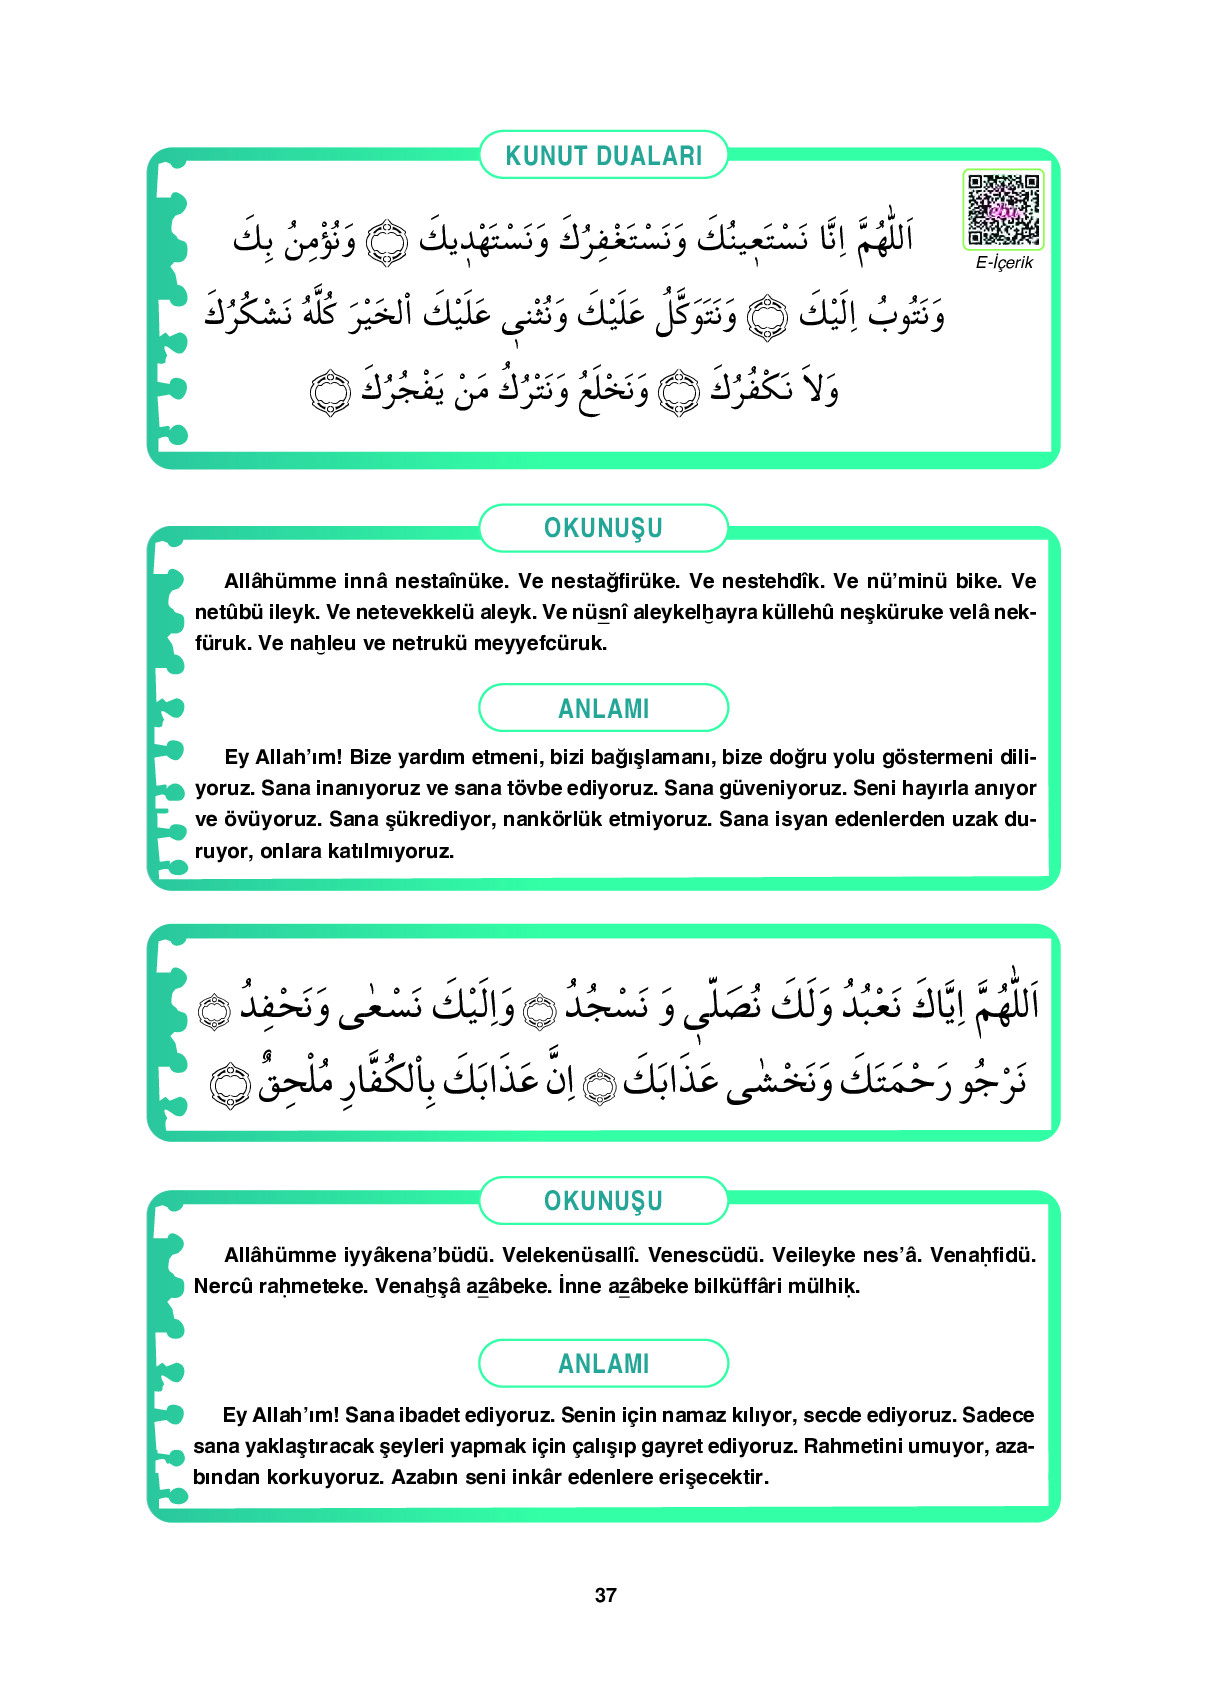 KUNUT DUALARI
اَللّٰهُمَّ اِنَّا نَسْتَعٖينُكَ وَنَسْتَغْفِرُكَ وَنَسْتَهْدٖيكَ ۝ وَنُؤْمِنُ بِكَ
E-İçerik
وَنَتُوبُ اِلَيْكَ ۝ وَنَتَوَكَّلُ عَلَيْكَ وَنُثْنٖى عَلَيْكَ اْلخَيْرَ كُلَّهُ نَشْكُرُكَ
وَلاَ نَكْفُرُكَ ۝ وَنَخْلَعُ وَنَتْرُكُ مَنْ يَفْجُرُكَ ۝
OKUNUŞU
Allâhümme innâ nestaînüke. Ve nestağfirüke. Ve nestehdîk. Ve nü’minü bike. Ve
netûbü ileyk. Ve netevekkelü aleyk. Ve nüs̲nî aleykelḫayra küllehû neşküruke velâ nek-
füruk. Ve naḫleu ve netrukü meyyefcüruk.
ANLAMI
Ey Allah’ım! Bize yardım etmeni, bizi bağışlamanı, bize doğru yolu göstermeni dili-
yoruz. Sana inanıyoruz ve sana tövbe ediyoruz. Sana güveniyoruz. Seni hayırla anıyor
ve övüyoruz. Sana şükrediyor, nankörlük etmiyoruz. Sana isyan edenlerden uzak du-
ruyor, onlara katılmıyoruz.
اَللّٰهُمَّ اِيَّاكَ نَعْبُدُ وَلَكَ نُصَلّٖى وَ نَسْجُدُ ۝ وَاِلَيْكَ نَسْعٰى وَنَحْفِدُ ۝
نَرْجُو رَحْمَتَكَ وَنَخْشٰى عَذَابَكَ ۝ اِنَّ عَذَابَكَ بِاْلكُفَّارِ مُلْحِقٌ ۝
OKUNUŞU
Allâhümme iyyâkena’büdü. Velekenüsallî. Venescüdü. Veileyke nes’â. Venaḥfidü.
Nercû raḥmeteke. Venaḫşâ az̲âbeke. İnne az̲âbeke bilküffâri mülhiḳ.
ANLAMI
Ey Allah’ım! Sana ibadet ediyoruz. Senin için namaz kılıyor, secde ediyoruz. Sadece
sana yaklaştıracak şeyleri yapmak için çalışıp gayret ediyoruz. Rahmetini umuyor, aza-
bından korkuyoruz. Azabın seni inkâr edenlere erişecektir.
37